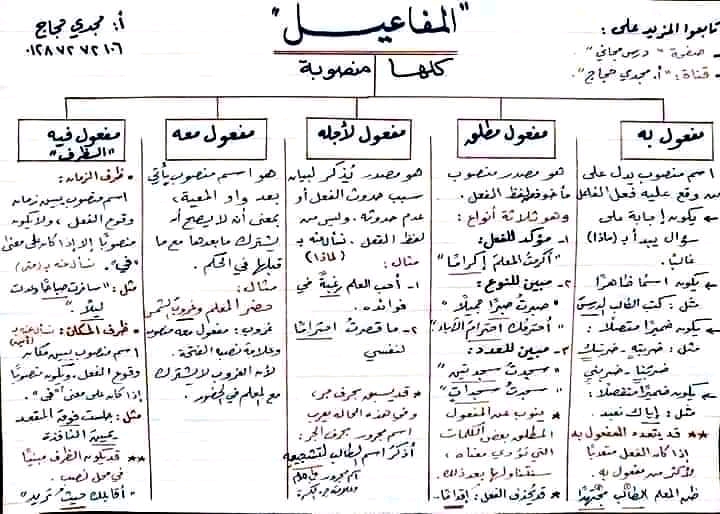 "المفاعيل"
كلها منصوبة
تابعوا المزيد على:
- صفحة "درس مجاني".
- قناة: "أ. مجدي حجاج".
أ: مجدي حجاج
٠١٢٨٧٢٧٢١٠٦
مفعول به
اسم منصوب يدل على
من وقع عليه فعل الفاعل
← يكون إجابة على
سؤال يبدأ بـ (ماذا)
غالبًا.
← يكون اسمًا ظاهرًا
مثل: كتب الطالب الدرسَ
← يكون ضميرًا متصلًا:
مثل: ضربته - ضربتك
ضربنا - ضربني
← يكون ضميرًا منفصلًا:
مثل: إياك نعبد.
** قد يتعدد المفعول به
إذا كان الفعل متعديًا
لأكثر من مفعول به.
ظن المعلم الطالبَ مجتهدًا
مفعول مطلق
هو مصدر منصوب
مأخوذ من لفظ الفعل.
وهو ثلاثة أنواع:
١- مؤكد للفعل:
"أكرمتُ المعلمَ إكرامًا"
٢- مبين للنوع:
"صبرتُ صبرًا جميلًا"
"أحترمك احترامَ الأبناء"
٣- مبين للعدد:
"سجدتُ سجدتين"
"سجدتُ سجداتٍ"
* ينوب عن المفعول
المطلق بعض الكلمات
التي تؤدي معناه،
سنتناولها بعد ذلك.
* قد يُحذف الفعل: إقدامًا-
مفعول لأجله
هو مصدر يُذكر لبيان
سبب حدوث الفعل أو
عدم حدوثه، وليس من
لفظ الفعل. نسأل عنه بـ
(لماذا)
مثال:
١- أحب العلم رغبةً في
فوائده.
٢- ما قصرتُ احترامًا
لنفسي
* قد يسبق بحرف جر،
وفي هذه الحالة يعرب
اسم مجرور بحرف الجر:
أذكرُ اسم الطالب لتشجيعه
مفعول معه
هو اسم منصوب يأتي
بعد واو المعية،
بمعنى أن لا يصح أن
يشترك ما بعدها مع ما
قبلها في الحكم.
مثال:
حضر المعلم وغروبَ الشمس
غروب: مفعول معه منصوب
وعلامة نصبه الفتحة.
لأن الغروب لا يشترك
مع المعلم في الحضور.
مفعول فيه
"الظرف"
* ظرف الزمان:
اسم منصوب يبين زمان
وقوع الفعل، ولا يكون
منصوبًا إلا إذا كان على معنى
"في". نسأل عنه بـ (متى)
مثل: "سافرت صباحًا وعدت
ليلًا"
* ظرف المكان: نسأل عنه بـ
(أين)
اسم منصوب يبين مكان
وقوع الفعل، ويكون منصوبًا
إذا كان على معنى "في".
مثل: جلست فوقَ المقعد
يمينَ النافذة
** قد يكون الظرف مبنيًا
في محل نصب.
"أقابلك حيثُ تريد"